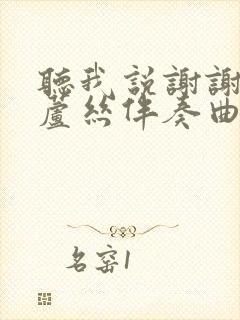 聽我說謝謝
蘆絲伴奏曲
名窑1